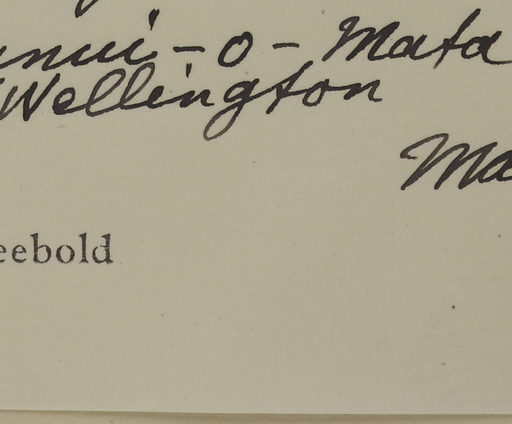 nui-o-Mata
Wellington
Ma
eebold